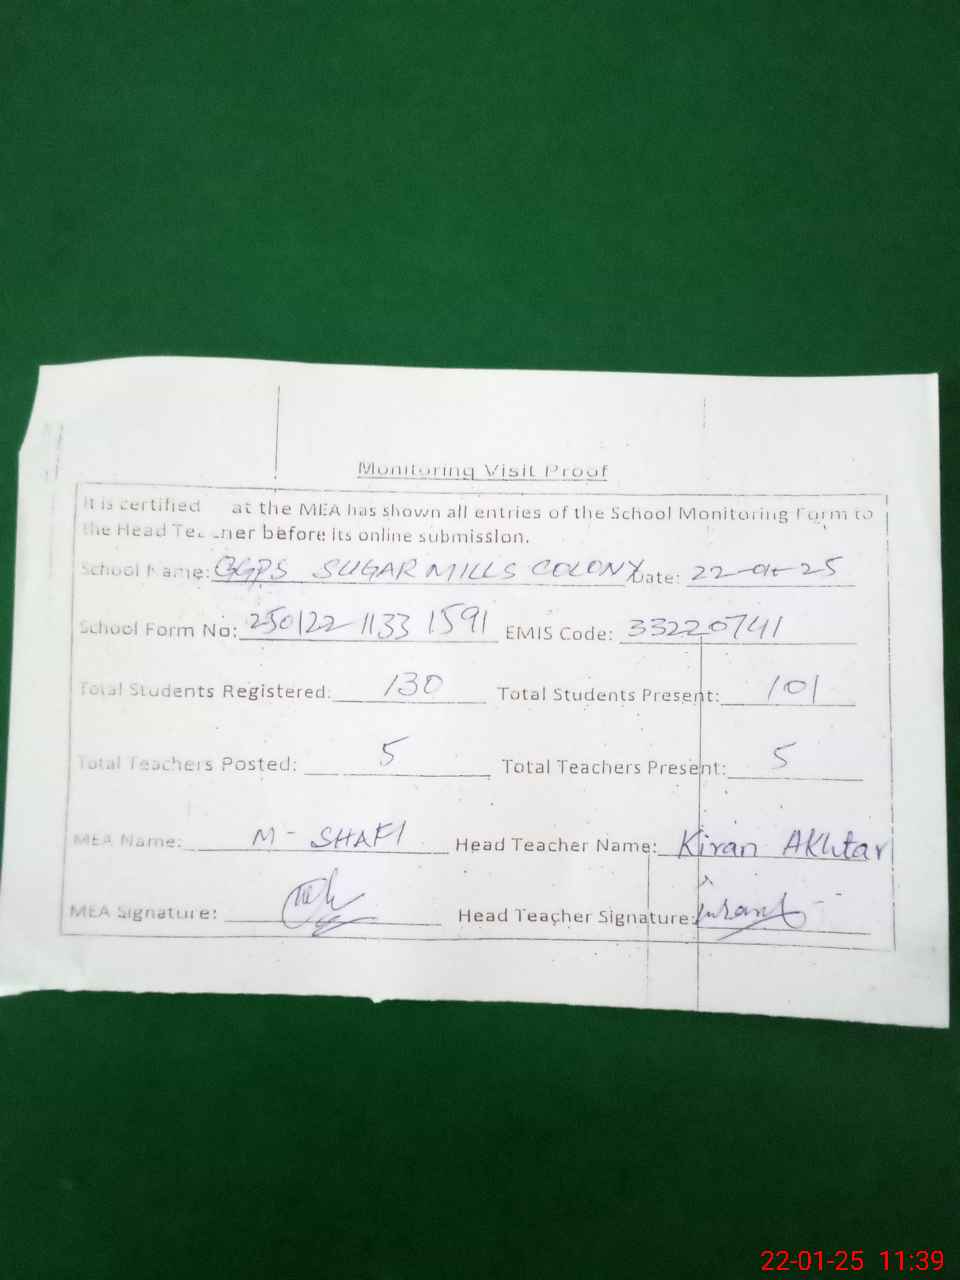 Monitoring Visit Proof
It is certified at the MEA has shown all entries of the School Monitoring Form to
the Head Teacher before its online submission.
School Name: GGPS SUGAR MILLS COLONY Date: 22-01-25
School Form No: 250122-1133 1591 EMIS Code: 33220741
Total Students Registered: 130 Total Students Present: 101
Total Teachers Posted: 5 Total Teachers Present: 5
MEA Name: M- SHAFI Head Teacher Name: Kiran Akhtar
MEA Signature: Head Teacher Signature:
22-01-25 11:39